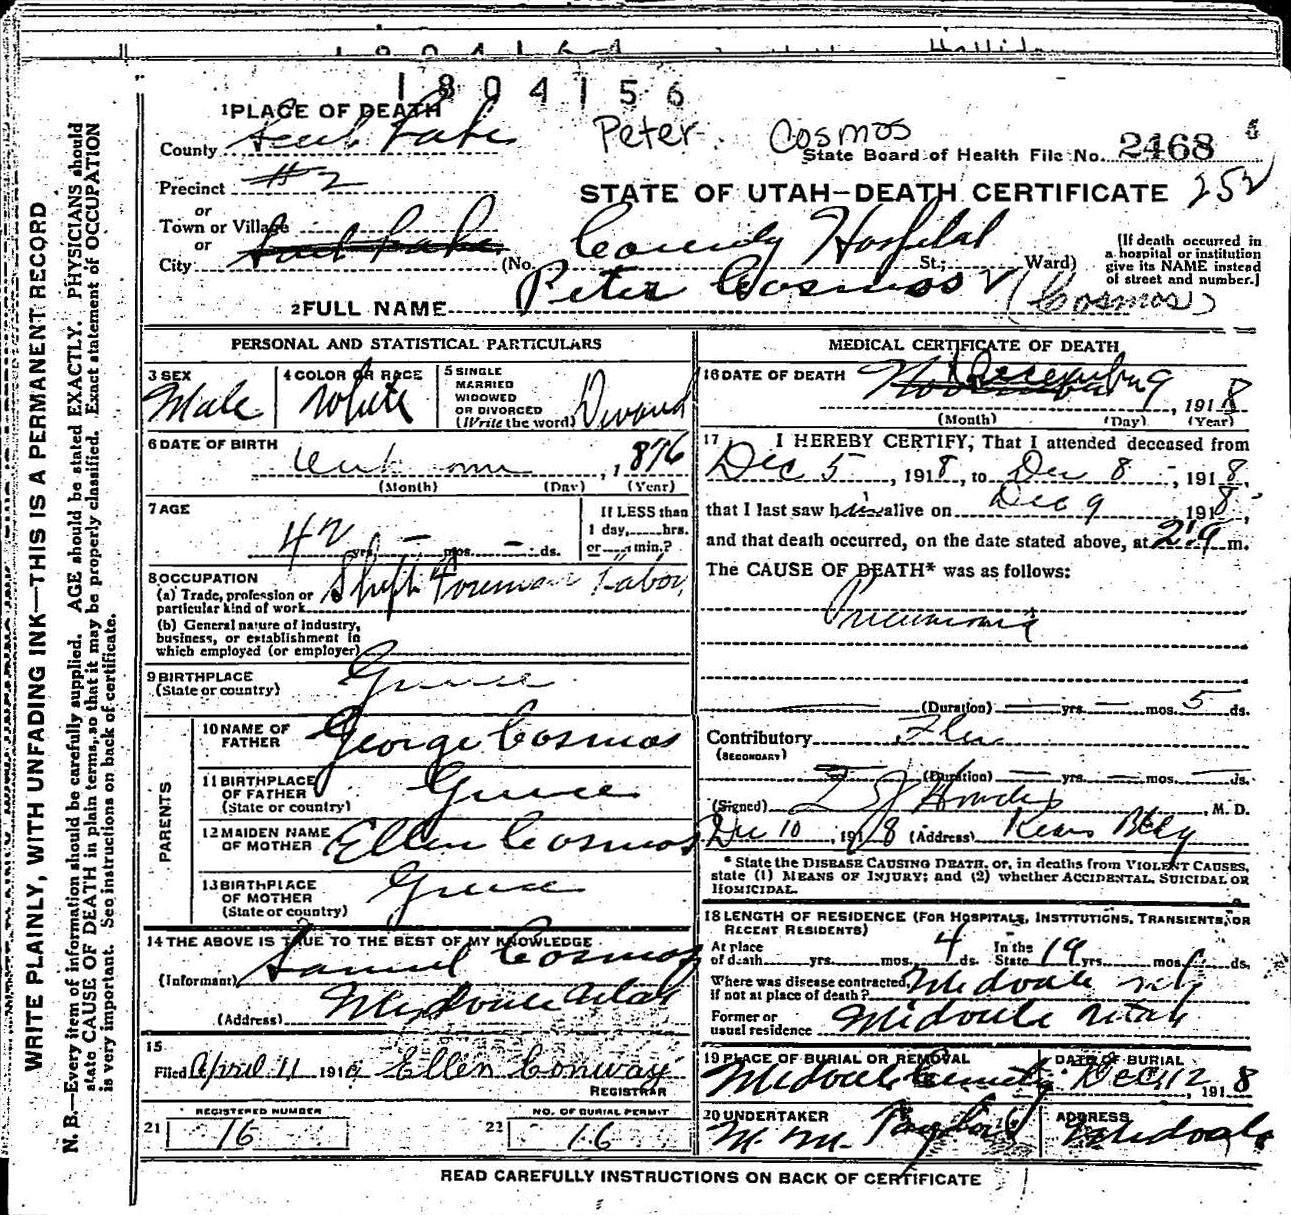 1804156
1 PLACE OF DEATH
Peter Cosmos
County Salt Lake
State Board of Health File No. 2468
Precinct #2
STATE OF UTAH—DEATH CERTIFICATE 252
or
Town or Village
or
City Salt Lake (No. County Hospital St.; Ward)
[If death occurred in
a hospital or institution
give its NAME instead
of street and number.]
2 FULL NAME Peter Cosmos (Cosmos)
PERSONAL AND STATISTICAL PARTICULARS
3 SEX
Male
4 COLOR OR RACE
White
5 SINGLE
MARRIED
WIDOWED
OR DIVORCED
(Write the word)
6 DATE OF BIRTH
Unknown, 1876
(Month) (Day) (Year)
7 AGE
42 yrs. — mos. — ds.
If LESS than
1 day, hrs.
or min.?
8 OCCUPATION
(a) Trade, profession or
particular kind of work Shift Foreman Labor
(b) General nature of industry,
business, or establishment in
which employed (or employer)
9 BIRTHPLACE
(State or country) Greece
PARENTS
10 NAME OF
FATHER George Cosmos
11 BIRTHPLACE
OF FATHER
(State or country) Greece
12 MAIDEN NAME
OF MOTHER Ellen Cosmos
13 BIRTHPLACE
OF MOTHER
(State or country) Greece
14 THE ABOVE IS TRUE TO THE BEST OF MY KNOWLEDGE
(Informant) Samuel Cosmos
(Address) Midvale Utah
15
Filed April 11 191 Ellen Conway
REGISTRAR
REGISTERED NUMBER
21 16
NO. OF BURIAL PERMIT
22 16
MEDICAL CERTIFICATE OF DEATH
16 DATE OF DEATH November December 9, 1918
(Month) (Day) (Year)
17 I HEREBY CERTIFY, That I attended deceased from
Dec 5, 1918, to Dec 8, 1918,
that I last saw him alive on Dec 9 1918,
and that death occurred, on the date stated above, at m.
The CAUSE OF DEATH* was as follows:
Pneumonia
(Duration) — yrs. — mos. 5 ds.
Contributory Flu
(SECONDARY)
(Duration) — yrs. — mos. — ds.
(Signed) M. D.
Dec 10, 1918 (Address) Kearns Bldg
* State the DISEASE CAUSING DEATH, or, in deaths from VIOLENT CAUSES,
state (1) MEANS OF INJURY; and (2) whether ACCIDENTAL, SUICIDAL OR
HOMICIDAL.
18 LENGTH OF RESIDENCE (FOR HOSPITALS, INSTITUTIONS, TRANSIENTS, OR
RECENT RESIDENTS)
At place
of death yrs. mos. 4 ds. In the
State 19 yrs. mos. ds.
Where was disease contracted,
if not at place of death? Midvale
Former or
usual residence Midvale Utah
19 PLACE OF BURIAL OR REMOVAL
Midvale Cemetery
DATE OF BURIAL
Dec 12, 1918
20 UNDERTAKER
M. M.
ADDRESS
Midvale
READ CAREFULLY INSTRUCTIONS ON BACK OF CERTIFICATE
WRITE PLAINLY, WITH UNFADING INK—THIS IS A PERMANENT RECORD
N. B.—Every item of information should be carefully supplied. AGE should be stated EXACTLY. PHYSICIANS should
state CAUSE OF DEATH in plain terms, so that it may be properly classified. Exact statement of OCCUPATION
is very important. See instructions on back of certificate.